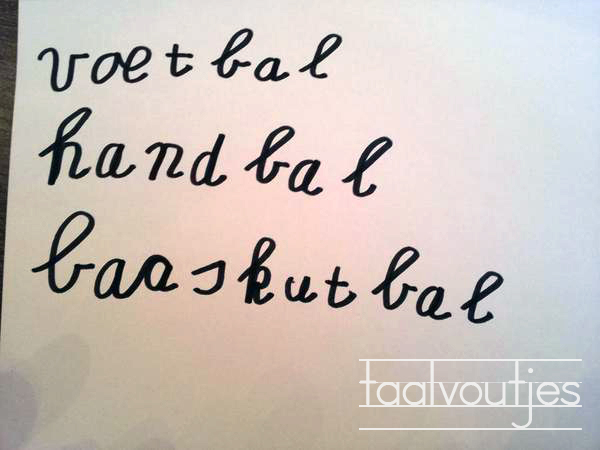 voetbal
handbal
baaskutbal
taalvoutjes